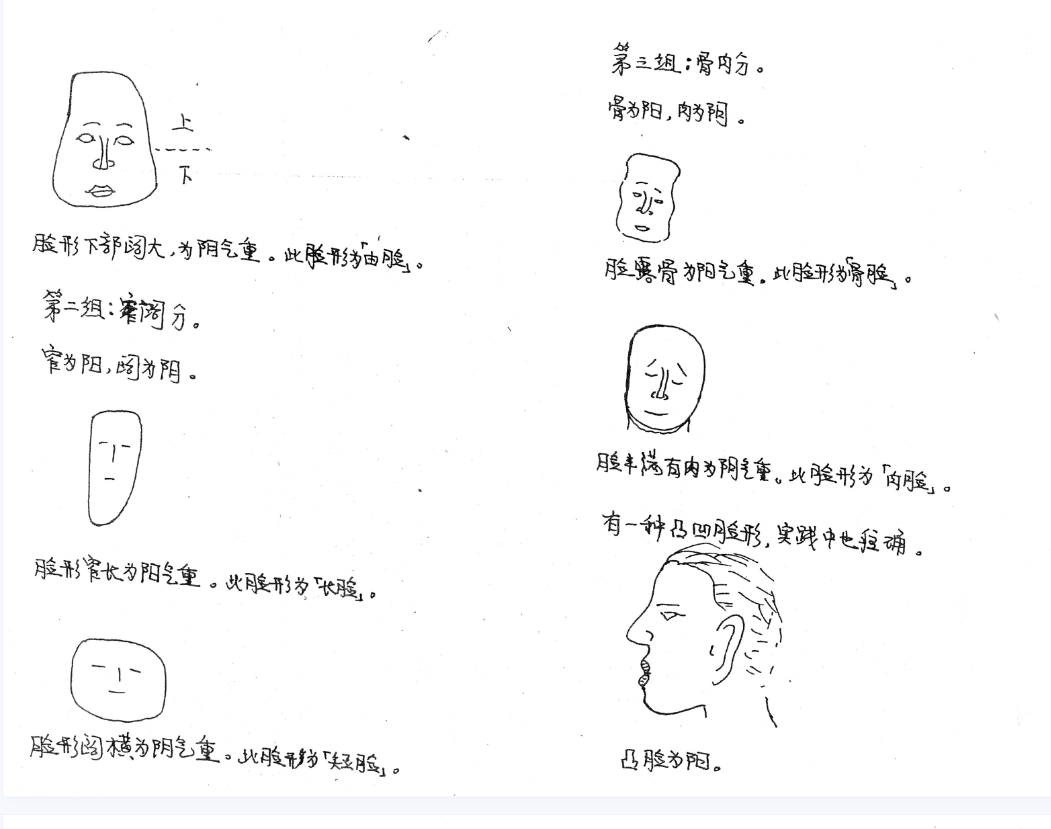 上
下
脸形下部阔大,为阴气重。此脸形为「由脸」。
第二组:窄阔分。
窄为阳,阔为阴。
脸形窄长为阳气重。此脸形为「长脸」。
脸形阔横为阴气重。此脸形为「短脸」。
第三组:骨肉分。
骨为阳,肉为阴。
脸露骨为阳气重。此脸形为「骨脸」。
脸丰满有肉为阴气重。此脸形为「肉脸」。
有一种凸凹脸形,实践中也准确。
凸脸为阳。